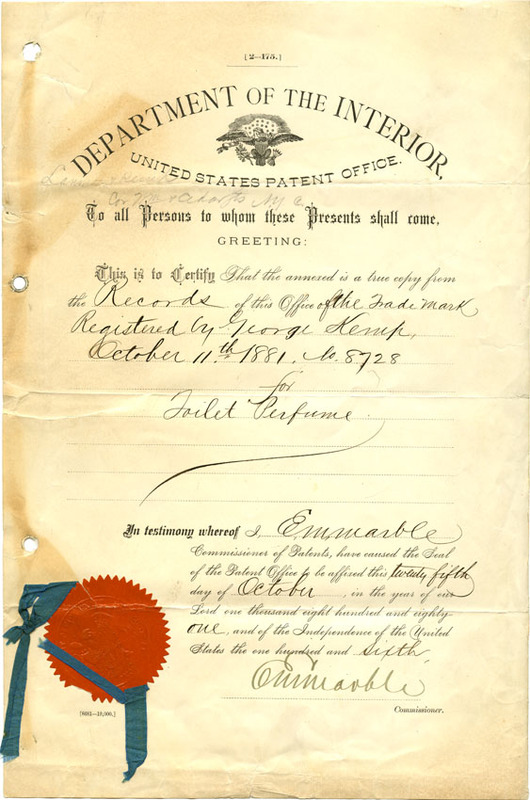 [2—175.]
DEPARTMENT OF THE INTERIOR,
UNITED STATES PATENT OFFICE.
To all Persons to whom these Presents shall come,
GREETING:
This is to Certify That the annexed is a true copy from
the Records of this Office of the Trade Mark
Registered by George Kemp,
October 11th 1881. No. 8728
for
Toilet Perfume
In testimony whereof I, E. M. Marble
Commissioner of Patents, have caused the Seal
of the Patent Office to be affixed this twenty fifth
day of October, in the year of our
Lord one thousand eight hundred and eighty-
one, and of the Independence of the United
States the one hundred and sixth.
E. M. Marble
Commissioner.